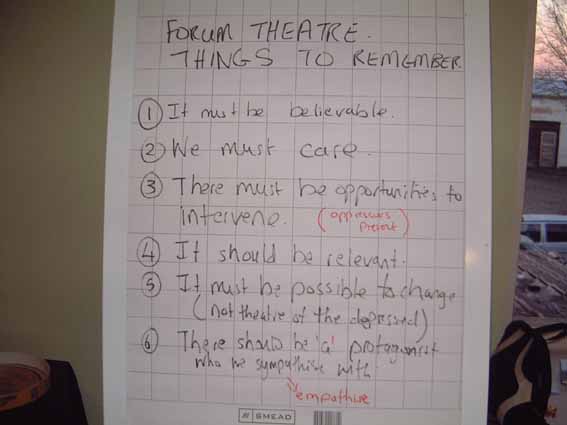 FORUM THEATRE.
THINGS TO REMEMBER
① It must be believable.
② We must care.
③ There must be opportunities to
intervene. (oppressors
present)
④ It should be relevant.
⑤ It must be possible to change
(not theatre of the depressed)
⑥ There should be 'a' protagonist
who we sympathise with
empathise
SMEAD